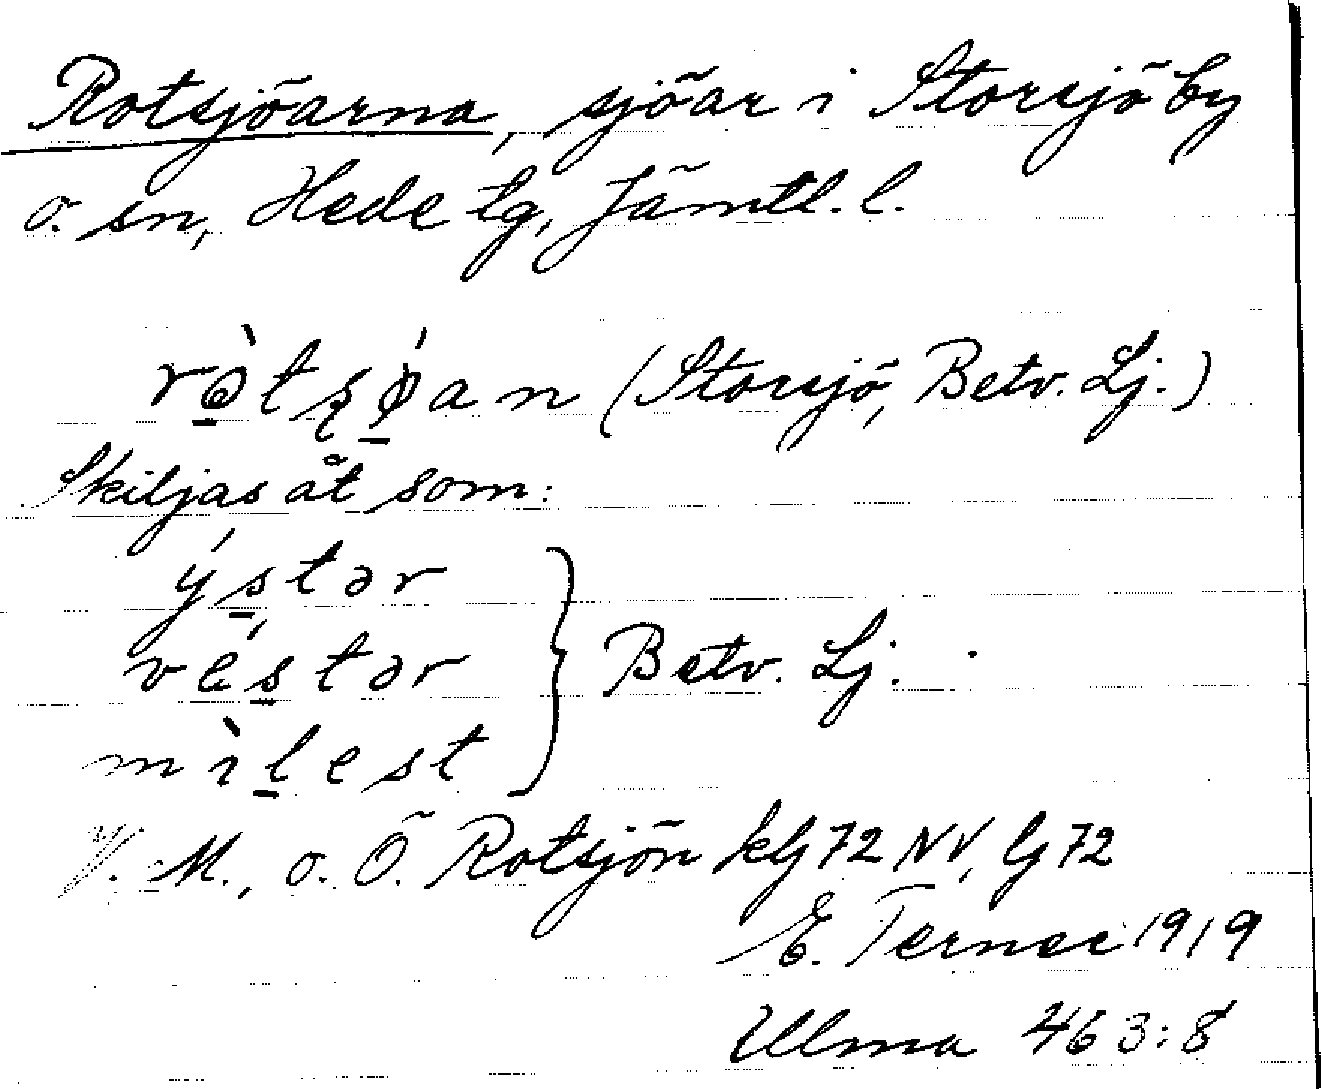 Rotsjöarna, sjöar i Storsjö by
o. sn, Hede tg, Jämtl. l.
rə̀tʂǿan (Storsjö, Betv. Lj.)
Skiljas åt som:
ýstər
véstər } Betv. Lj.
mìlest
V. M., o. Ö. Rotsjön kbl 72 NV, bl 72
E. Terner 1919
Ulma 463:8